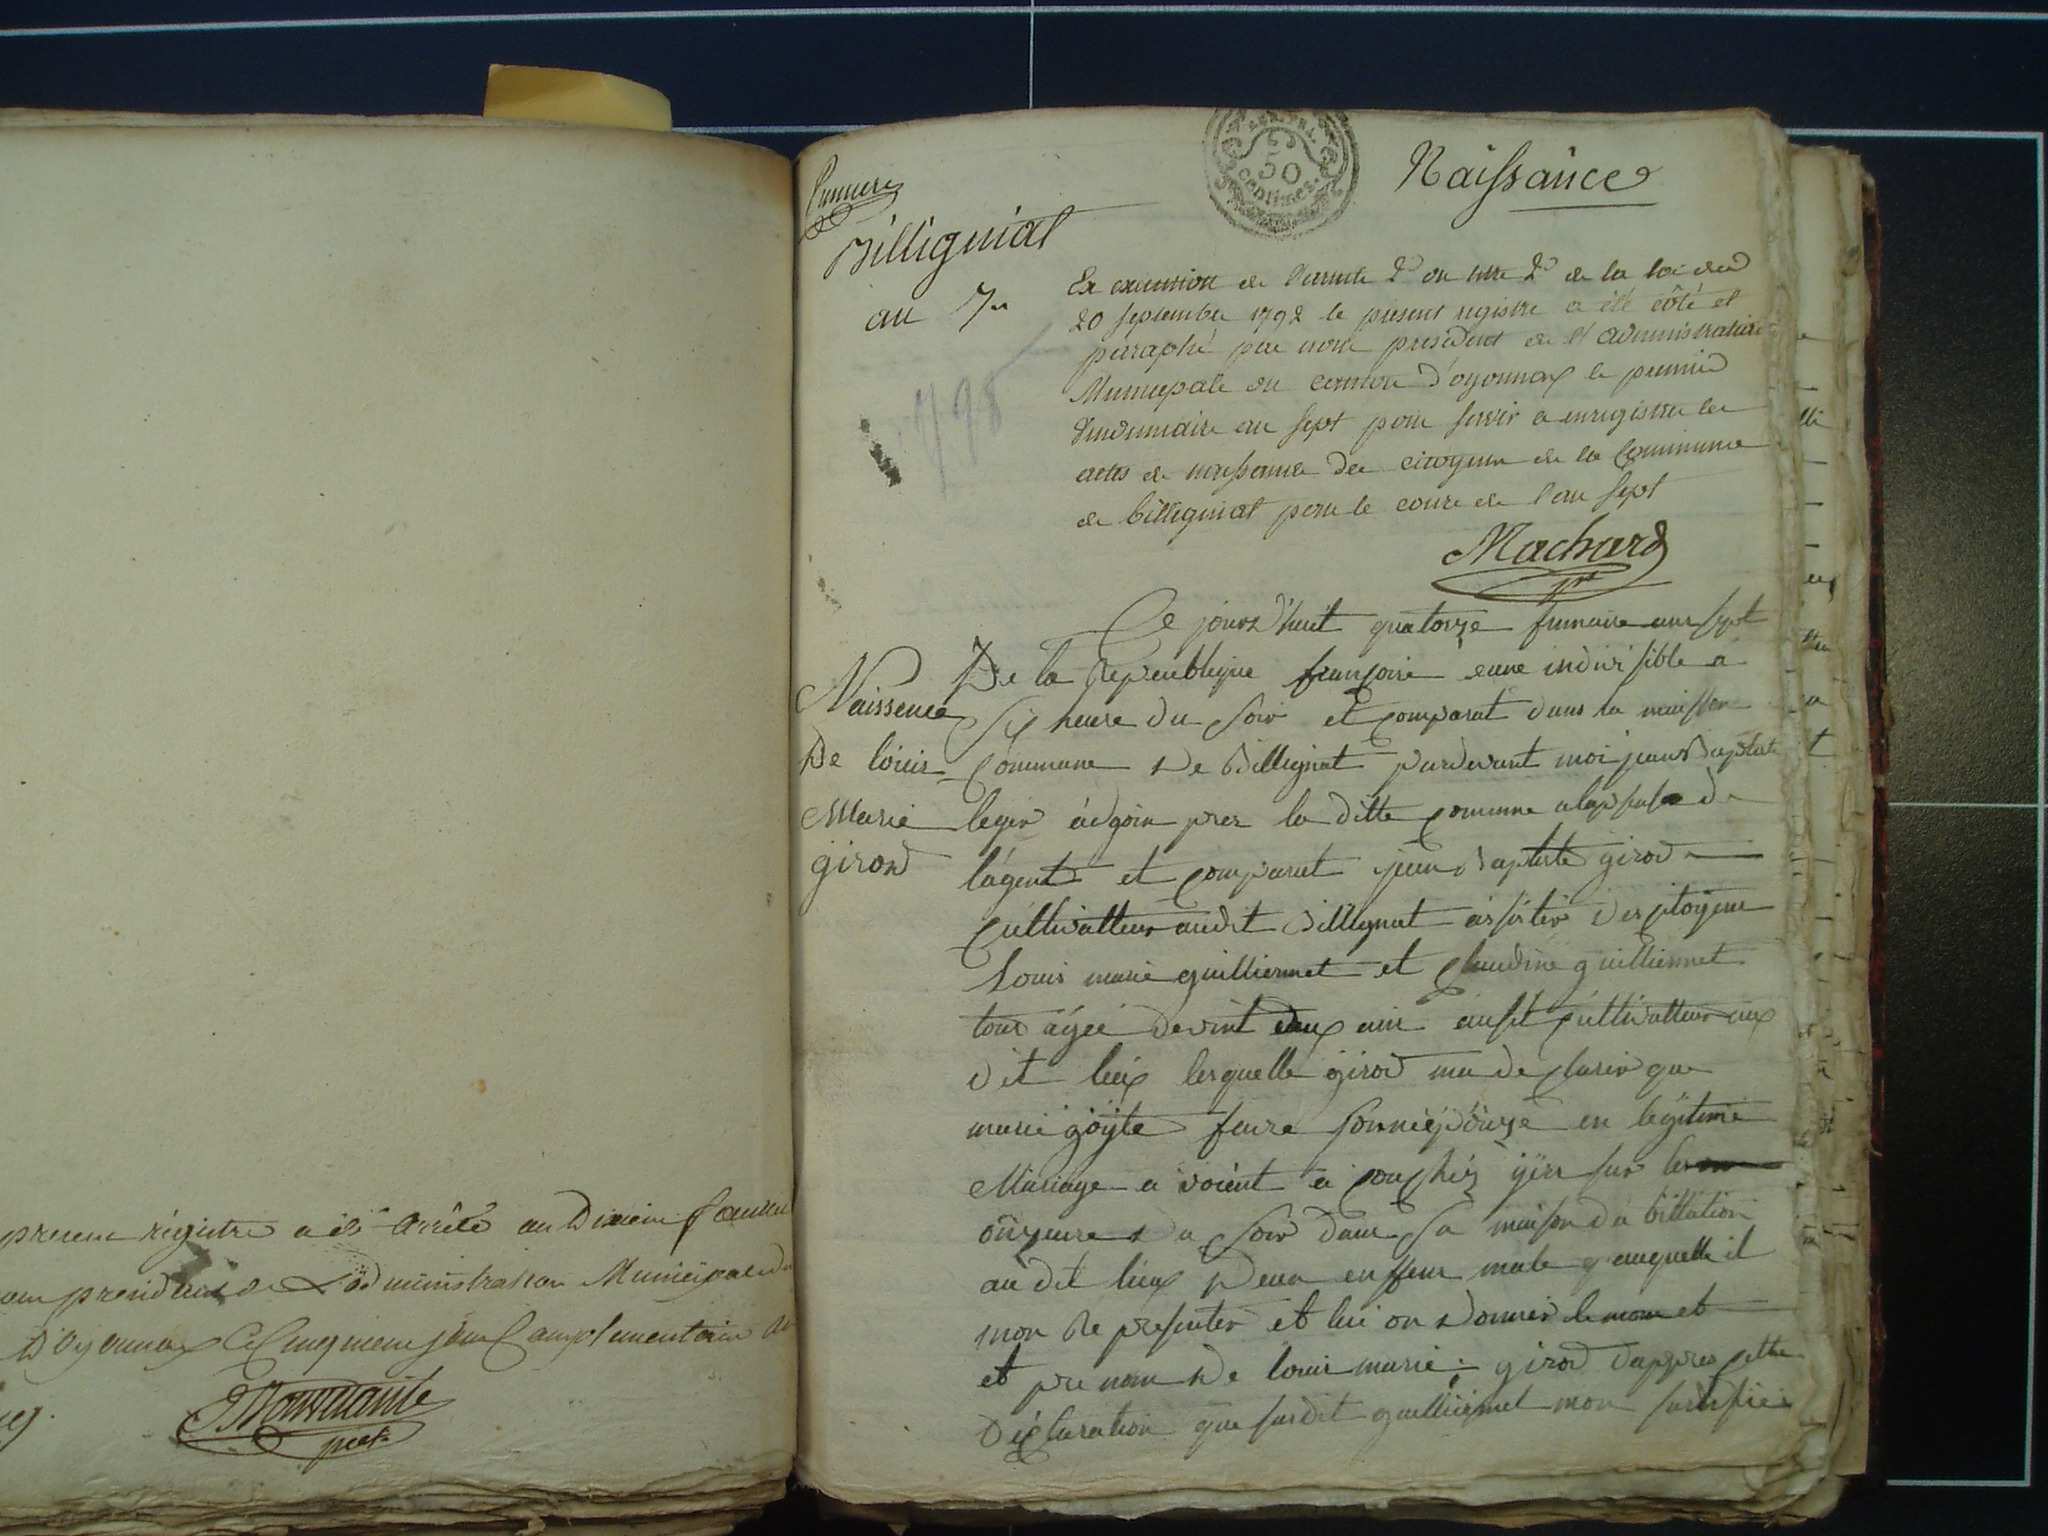 present régistre a été arrêté au Dixieme feuillet
president de L'administration Municipale du
D'Oyonnax Ce Cinquieme jour Complementaire
prest
Billigniat
an 7e
1798
50
Centimes
Naissance
En execution de l'article 2d du titre 2d de la loi du
20 septembre 1792 le present registre a été côté et
paraphé par nous president de l'administration
Municipale du canton d'oyonnax le premier
Vendemiaire an sept pour servir a enregistrer les
actes de naissance des citoyens de la Commune
de billigniat pour le cours de l'an sept
Machard
pnt
Ce jourd'huit quatorze frimaire ans sept
De la Republique françoise eune indivisible a
Naissence
De louis
Marie
girod
six heure du soir et comparut dans la maisson
commune De Billignat pardevant moi jean Baptiste
leger adgoin prez la ditte comunne
lágent et comparut jean baptiste girod
cultivatteur audit billignat assister des citoyene
Louis marie guilliermet et claudine guilliermet
tous ágée de vint deux ans cultivatteur aux
dit lieux lesquelle girod ma de clarer que
marie goyte son népouze en legitime
Mariage a voient a couchéz yier sur les
onzeure du soir dans sa maison da bittation
au dit lieux deun enffens male q'auquelle il
mon Re presenter et lui on donner le nom et
et pre nom De louis marie girod dappres cette
déclaration que susdit guilliermet mon